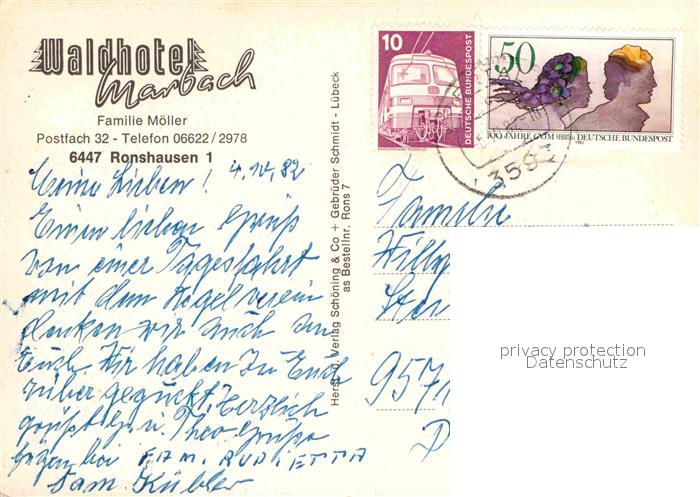 Waldhotel
Marbach
Familie Möller
Postfach 32 - Telefon 06622/2978
6447 Ronshausen 1
Meine Lieben!
Einen lieben Gruß
von einer Tagesfahrt
mit dem Kegelverein
denken wir auch an
Euch. Wir haben zu Euch
rüber geguckt! Herzlich
grüßt u. Theo Grüße
FAM. RUDI ETTA
Fam. Kübler
Herst. u. Verlag Schöning & Co + Gebrüder Schmidt - Lübeck
as Bestellnr. Rons 7
10
DEUTSCHE BUNDESPOST
50
100 JAHRE CVJM DEUTSCHE BUNDESPOST
1982
3583
Familie
Willy
957
D
privacy protection
Datenschutz